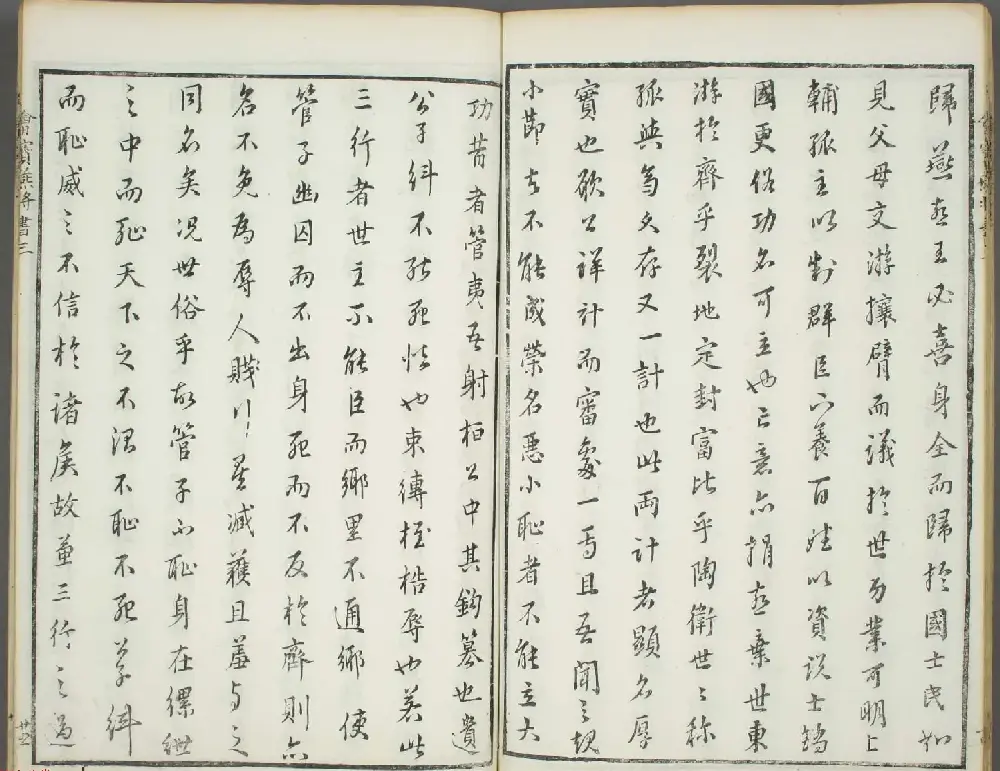 歸燕燕王必喜身全而歸於國士民如
見父母交游攘臂而議於世功業可明上
輔孤主以制群臣下養百姓以資說士矯
國更俗功名可立也亡意亦捐燕棄世東
游於齊乎裂地定封富比乎陶衛世〻稱
孤與齊久存又一計也此兩計者顯名厚
實也欲公詳計而審處一焉且吾聞之規
小節者不能成榮名惡小恥者不能立大
功昔者管夷吾射桓公中其鉤篡也遺
公子糾不能死怯也束縛桎梏辱也若此
三行者世主不能臣而鄉里不通鄉使
管子幽囚而不出身死而不反於齊則亦
名不免為辱人賤行矣臧獲且羞與之
同名矣況世俗乎故管子不恥身在縲紲
之中而恥天下之不治不恥不死公子糾
而恥威之不信於諸侯故兼三行之過